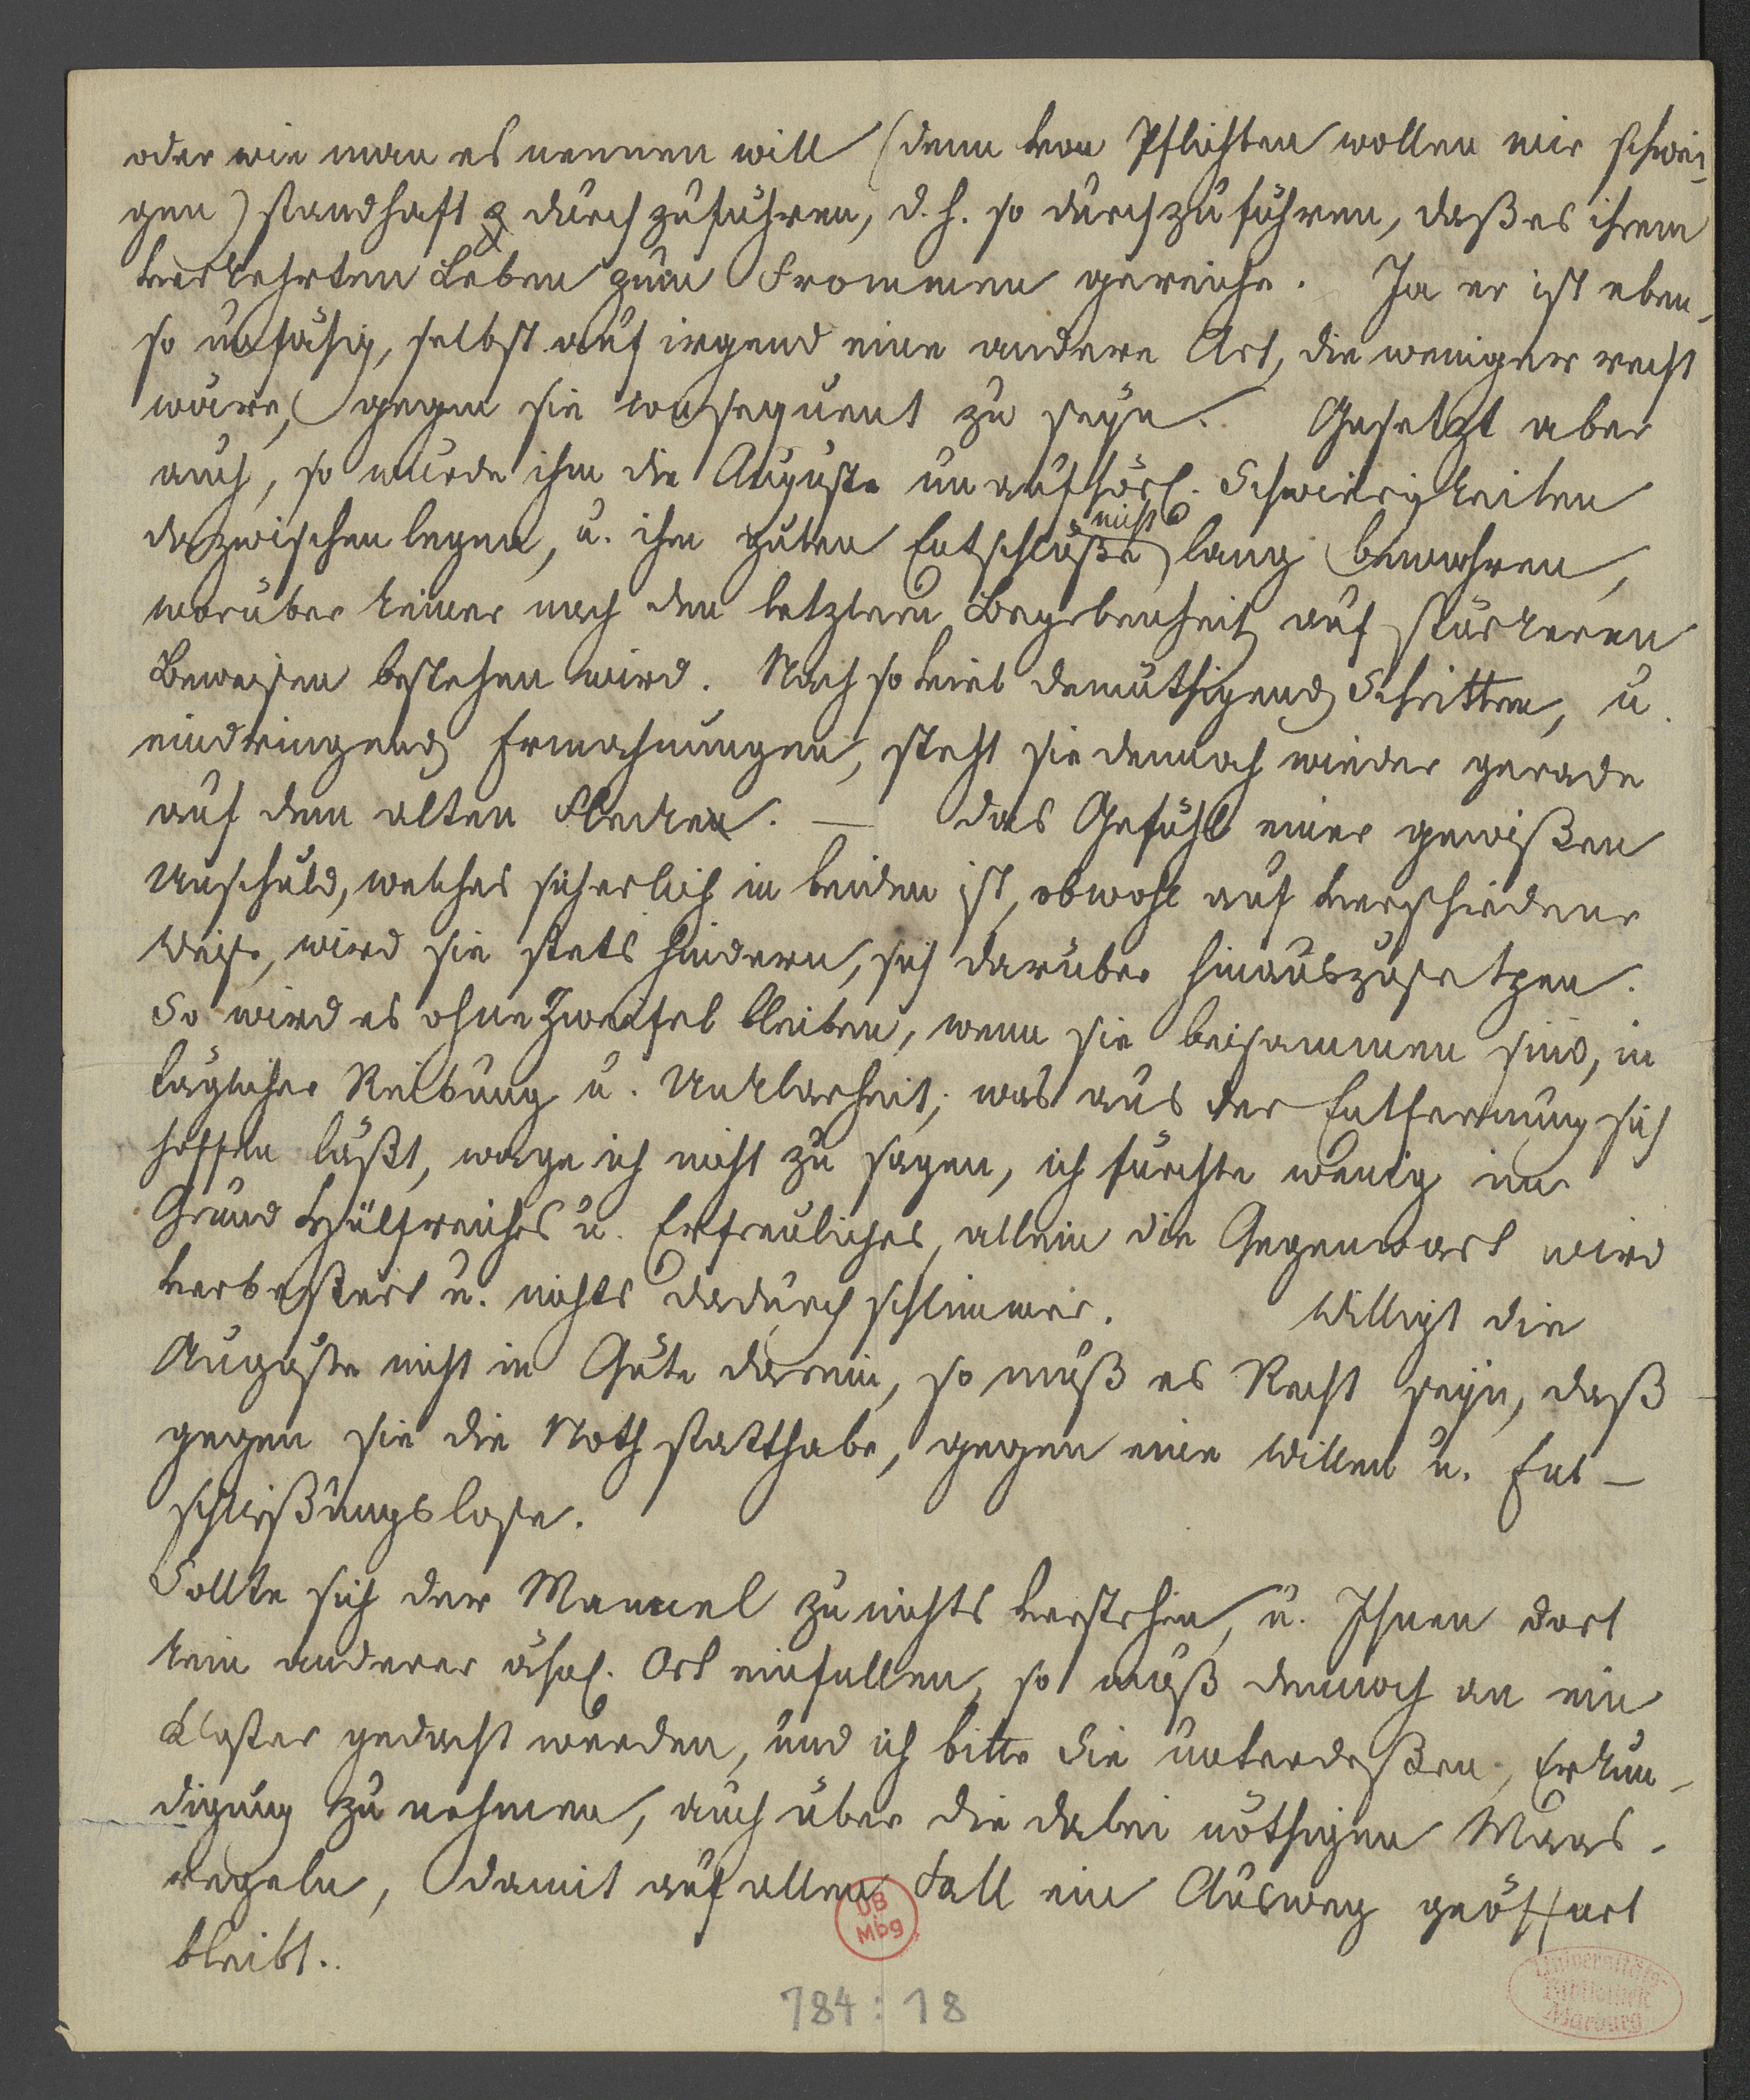 oder wie man es nennen will (denn von Pflichten wollen wir schwei-
gen) standhaft durchzuführen, d. h. so durchzuführen, daß es ihrem
verkehrten Leben zum Frommen gereiche. Ja er ist eben-
so unfähig, selbst auf irgend eine andere Art, die weniger recht
wäre, gegen sie consequent zu seyn. Gesetzt aber
auch, so würde ihm die Auguste unaufhörl. Schwierigkeiten
dazwischen legen, u. ihn guten Entschlüße nicht lang bewahren,
worüber keiner nach den letztern Begebenheit auf stärkeren
Beweisen bestehen wird. Nach so viel demüthigend Schritten, u.
eindringend Ermahnungen, steht sie dennoch wieder gerade
auf dem alten Flecken. — Das Gefühl einer gewißen
Unschuld, welches sicherlich in beiden ist, obwohl auf verschiedene
Weise, wird sie stets hindern, sich darüber hinauszusetzen.
So wird es ohne Zweifel bleiben, wenn sie beisammen sind, in
täglicher Reibung u. Unklarheit; was aus der Entfernung sich
hoffen läßt, wage ich nicht zu sagen, ich fürchte wenig im
Grund Hülfreiches u. Erfreuliches, allein die Gegenwart wird
verbeßert u. nichts dadurch schlimmer. Willigt die
Auguste nicht in Güte darein, so muß es Recht seyn, daß
gegen sie die Noth statthabe, gegen eine Willen u. Ent-
schließungslose.
Sollte sich der Manuel zu nichts verstehen, u. Ihnen dort
kein anderer ähnl. Ort einfallen, so muß dennoch an ein
Kloster gedacht werden, und ich bitte Sie unterdeßen, Erkun-
digung zu nehmen, auch über die dabei nöthigen Maas-
regeln, damit auf allen Fall ein Ausweg geöffnet
bleibt.
UB
Mbg
784:18
Universitäts-
Bibliothek
Marburg